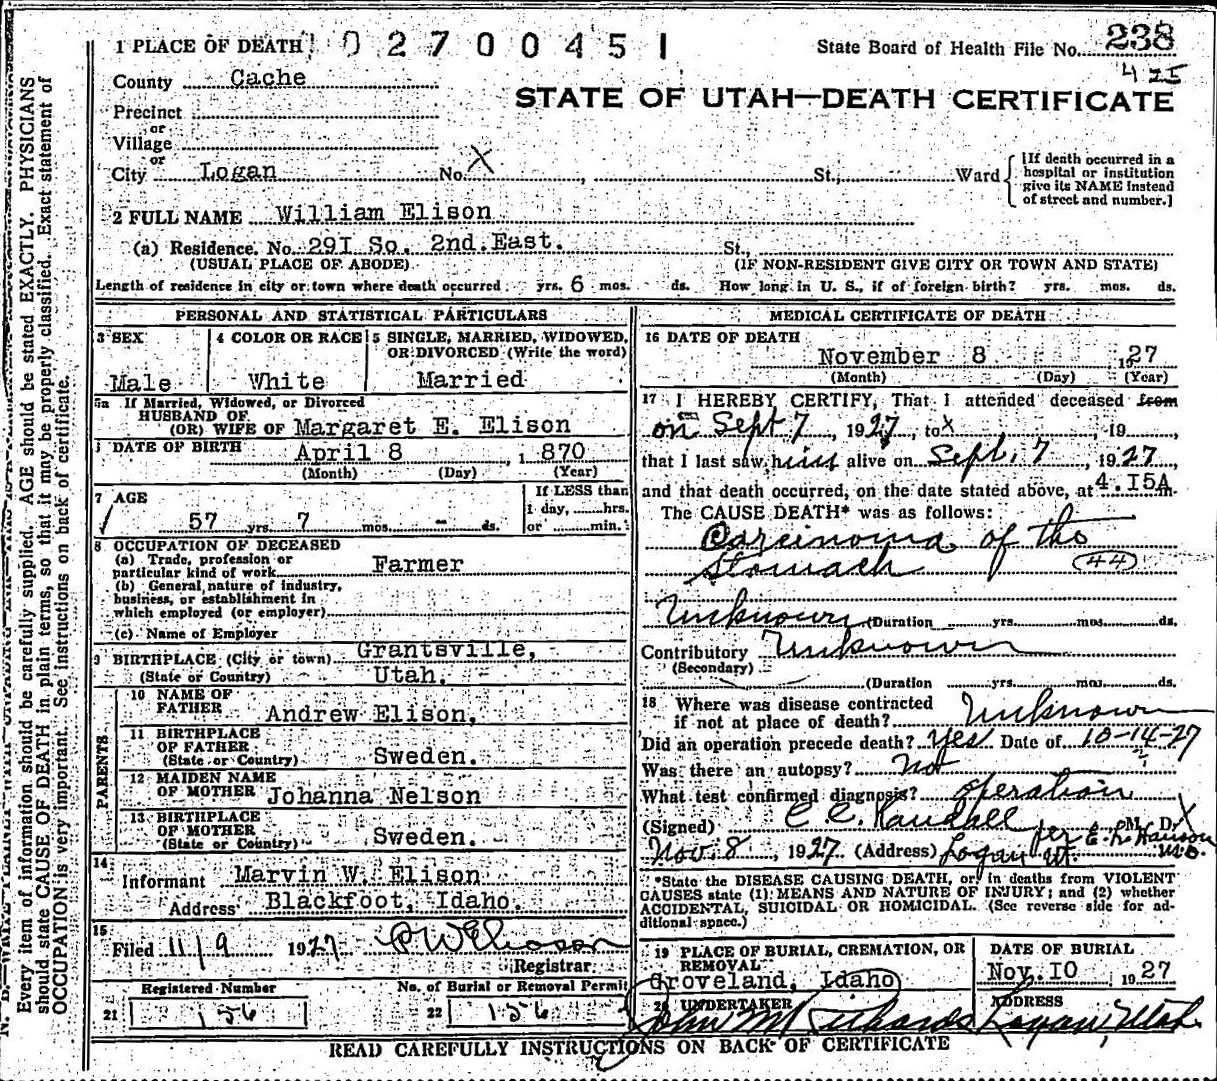 1 PLACE OF DEATH 02700451 State Board of Health File No. 238
425
County Cache
STATE OF UTAH—DEATH CERTIFICATE
Precinct
or
Village
or
City Logan No. X , St., Ward [If death occurred in a hospital or institution give its NAME instead of street and number.]
2 FULL NAME William Elison
(a) Residence. No. 291 So. 2nd. East. St.,
(USUAL PLACE OF ABODE) (IF NON-RESIDENT GIVE CITY OR TOWN AND STATE)
Length of residence in city or town where death occurred yrs. 6 mos. ds. How long in U. S., if of foreign birth? yrs. mos. ds.
PERSONAL AND STATISTICAL PARTICULARS
3 SEX 4 COLOR OR RACE 5 SINGLE, MARRIED, WIDOWED, OR DIVORCED (Write the word)
Male White Married
5a If Married, Widowed, or Divorced
HUSBAND OF
(OR) WIFE OF Margaret E. Elison
DATE OF BIRTH April 8 , 1870
(Month) (Day) (Year)
7 AGE If LESS than
1 day, hrs.
57 yrs. 7 mos. - ds. or min.
8 OCCUPATION OF DECEASED
(a) Trade, profession or
particular kind of work Farmer
(b) General nature of industry,
business, or establishment in
which employed (or employer)
(c) Name of Employer
9 BIRTHPLACE (City or town) Grantsville,
(State or Country) Utah.
PARENTS
10 NAME OF
FATHER Andrew Elison,
11 BIRTHPLACE
OF FATHER
(State or Country) Sweden.
12 MAIDEN NAME
OF MOTHER Johanna Nelson
13 BIRTHPLACE
OF MOTHER
(State or Country) Sweden.
14
Informant Marvin W. Elison
Address Blackfoot, Idaho.
15
Filed 11/9 1927
Registrar.
Registered Number No. of Burial or Removal Permit
21 156 22 156
MEDICAL CERTIFICATE OF DEATH
16 DATE OF DEATH
November 8 1927
(Month) (Day) (Year)
17 I HEREBY CERTIFY, That I attended deceased from
on Sept 7, 1927, to X, 19
that I last saw him alive on Sept. 7, 1927,
and that death occurred, on the date stated above, at 4.15A m.
The CAUSE DEATH* was as follows:
Carcinoma of the
Stomach (44)
Unknown (Duration yrs. mos. ds.
Contributory Unknown
(Secondary)
(Duration yrs. mos. ds.
18 Where was disease contracted
if not at place of death? Unknown
Did an operation precede death? Yes Date of 10-14-27
Was there an autopsy? Not ?
What test confirmed diagnosis? operation
(Signed) C C Randall M. D. X
per E. L. Hanson M.D.
Nov. 8, 1927 (Address) Logan Ut.
*State the DISEASE CAUSING DEATH, or in deaths from VIOLENT
CAUSES state (1) MEANS AND NATURE OF INJURY; and (2) whether
ACCIDENTAL, SUICIDAL OR HOMICIDAL. (See reverse side for ad-
ditional space.)
19 PLACE OF BURIAL, CREMATION, OR REMOVAL DATE OF BURIAL
Groveland, Idaho Nov. 10, 1927
20 UNDERTAKER ADDRESS
John M Richards Logan, Utah
READ CAREFULLY INSTRUCTIONS ON BACK OF CERTIFICATE
Every item of information should be carefully supplied. AGE should be stated EXACTLY. PHYSICIANS
should state CAUSE OF DEATH in plain terms, so that it may be properly classified. Exact statement of
OCCUPATION is very important. See instructions on back of certificate.